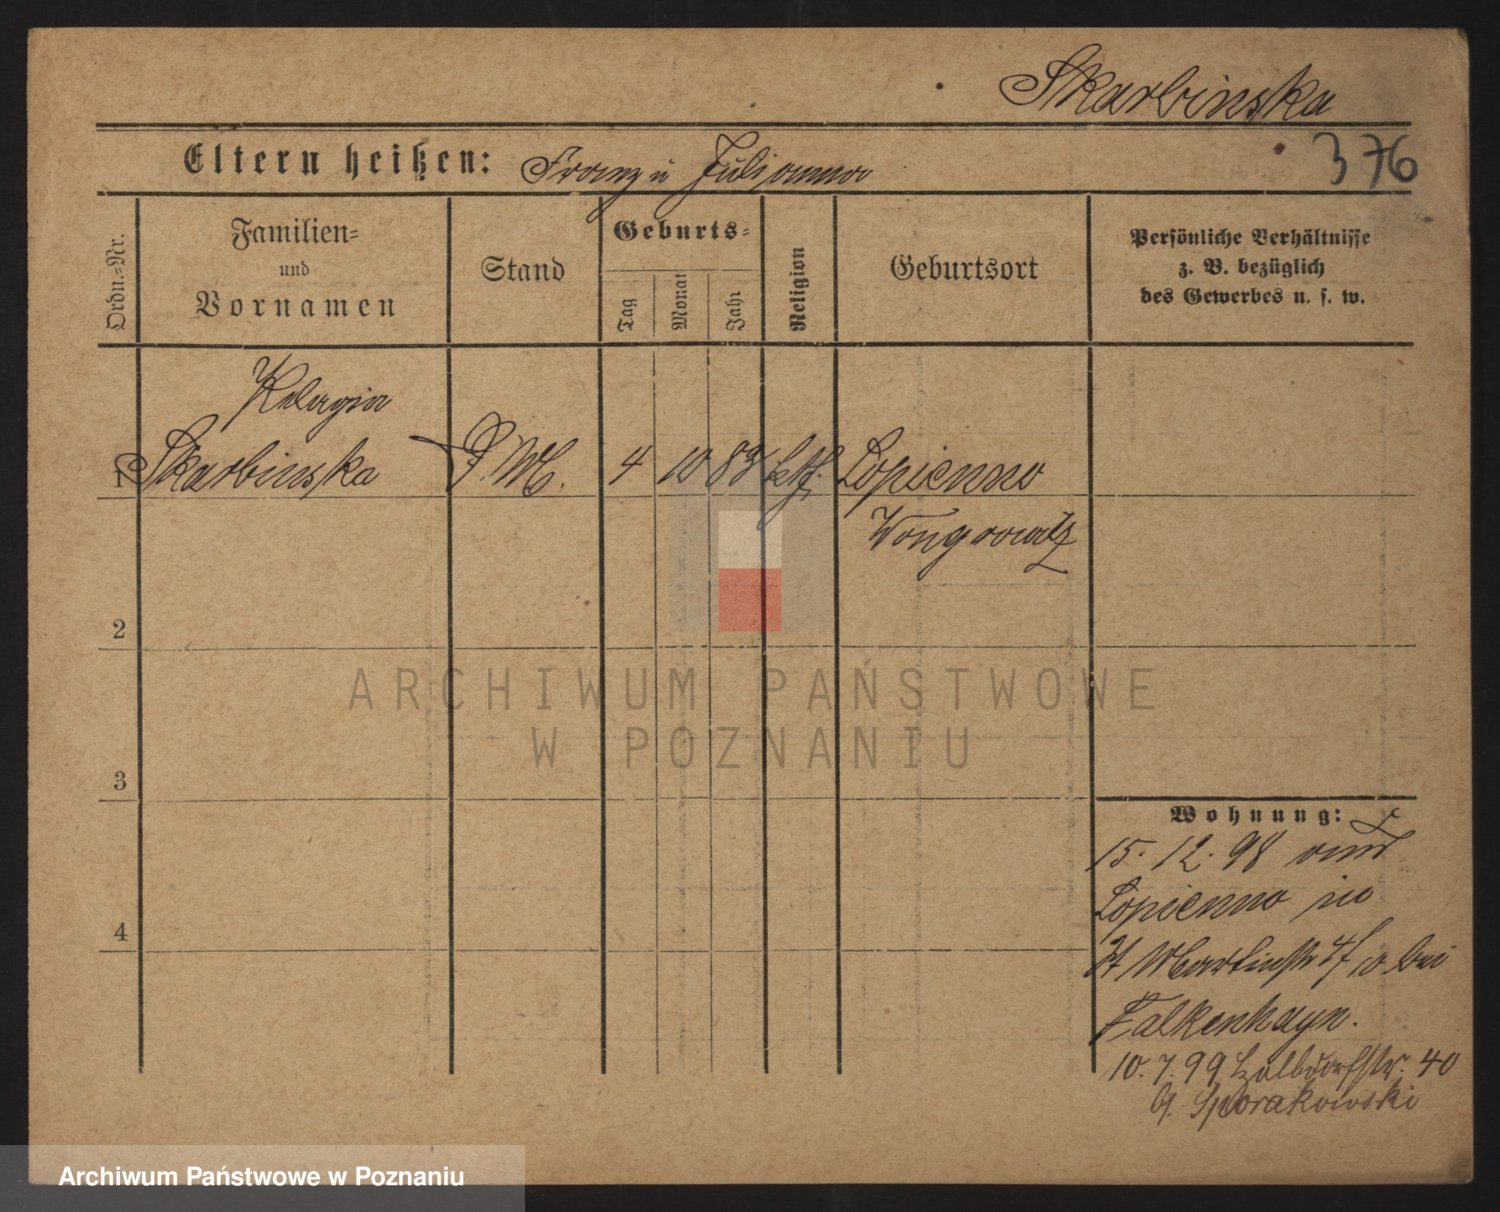 Skarbinska
Eltern heißen: Franz u Julianna
376
Ordn.=Nr.
Familien=
und
Vornamen
Stand
Geburts=
Tag
Monat
Jahr
Religion
Geburtsort
Persönliche Verhältnisse
z. B. bezüglich
des Gewerbes u. s. w.
Pelagia
1 Skarbinska D. M. 4 10 83 kth. Lopienno
Wongrowitz
2
ARCHIWUM PAŃSTWOWE
W POZNANIU
3
Wohnung:
15. 12. 98 aus
Lopienno in
St Martinstr bei
4
Falkenhayn.
10. 7. 99 40
Archiwum Państwowe w Poznaniu